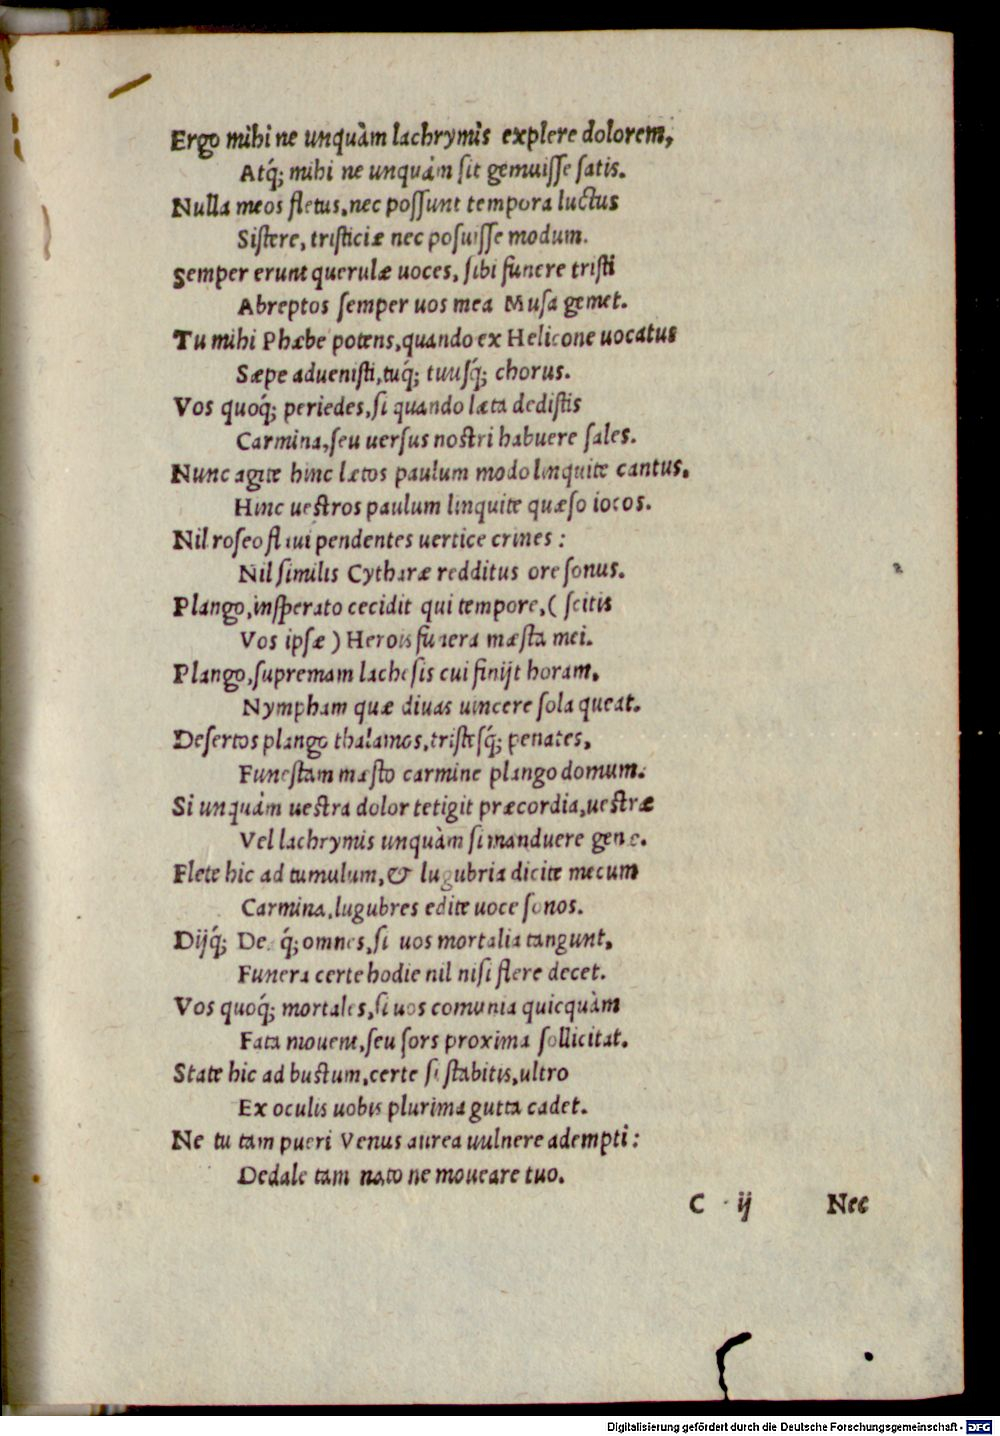 Ergo mihi ne unquàm lachrymis explere dolorem,
Atq́; mihi ne unquàm sit gemuisse satis.
Nulla meos fletus, nec possunt tempora luctus
Sistere, tristiciæ nec posuisse modum.
Semper erunt querulæ uoces, sibi funere tristi
Abreptos semper uos mea Musa gemet.
Tu mihi Phæbe potens, quando ex Helicone uocatus
Sæpe aduenisti, tuq́; tuusq́; chorus.
Vos quoq́; periedes, si quando læta dedistis
Carmina, seu uersus nostri habuere sales.
Nunc agite hinc lætos paulum modo linquite cantus.
Hinc uestros paulum linquite quæso iocos.
Nil roseo flaui pendentes uertice crines:
Nil similis Cytharæ redditus ore sonus.
Plango, insperato cecidit qui tempore, (scitis
Vos ipsæ) Herois funera mæsta mei.
Plango, supremam lachesis cui finijt horam.
Nympham quæ diuas uincere sola queat.
Desertos plango thalamos, tristesq́; penates,
Funestam mæsto carmine plango domum.
Si unquàm uestra dolor tetigit præcordia, uestræ
Vel lachrymis unquàm si manduere genæ.
Flete hic ad tumulum, & lugubria dicite mecum
Carmina, lugubres edite uoce sonos.
Dijq́; Deæq́; omnes, si uos mortalia tangunt,
Funera certe hodie nil nisi flere decet.
Vos quoq́; mortales, si uos comunia quicquàm
Fata mouent, seu sors proxima sollicitat.
State hic ad bustum, certe si stabitis, ultro
Ex oculis uobis plurima gutta cadet.
Ne tu tam pueri Venus aurea uulnere adempti:
Dedale tam nato ne moueare tuo.
C ij Nec
Digitalisierung gefördert durch die Deutsche Forschungsgemeinschaft - DFG